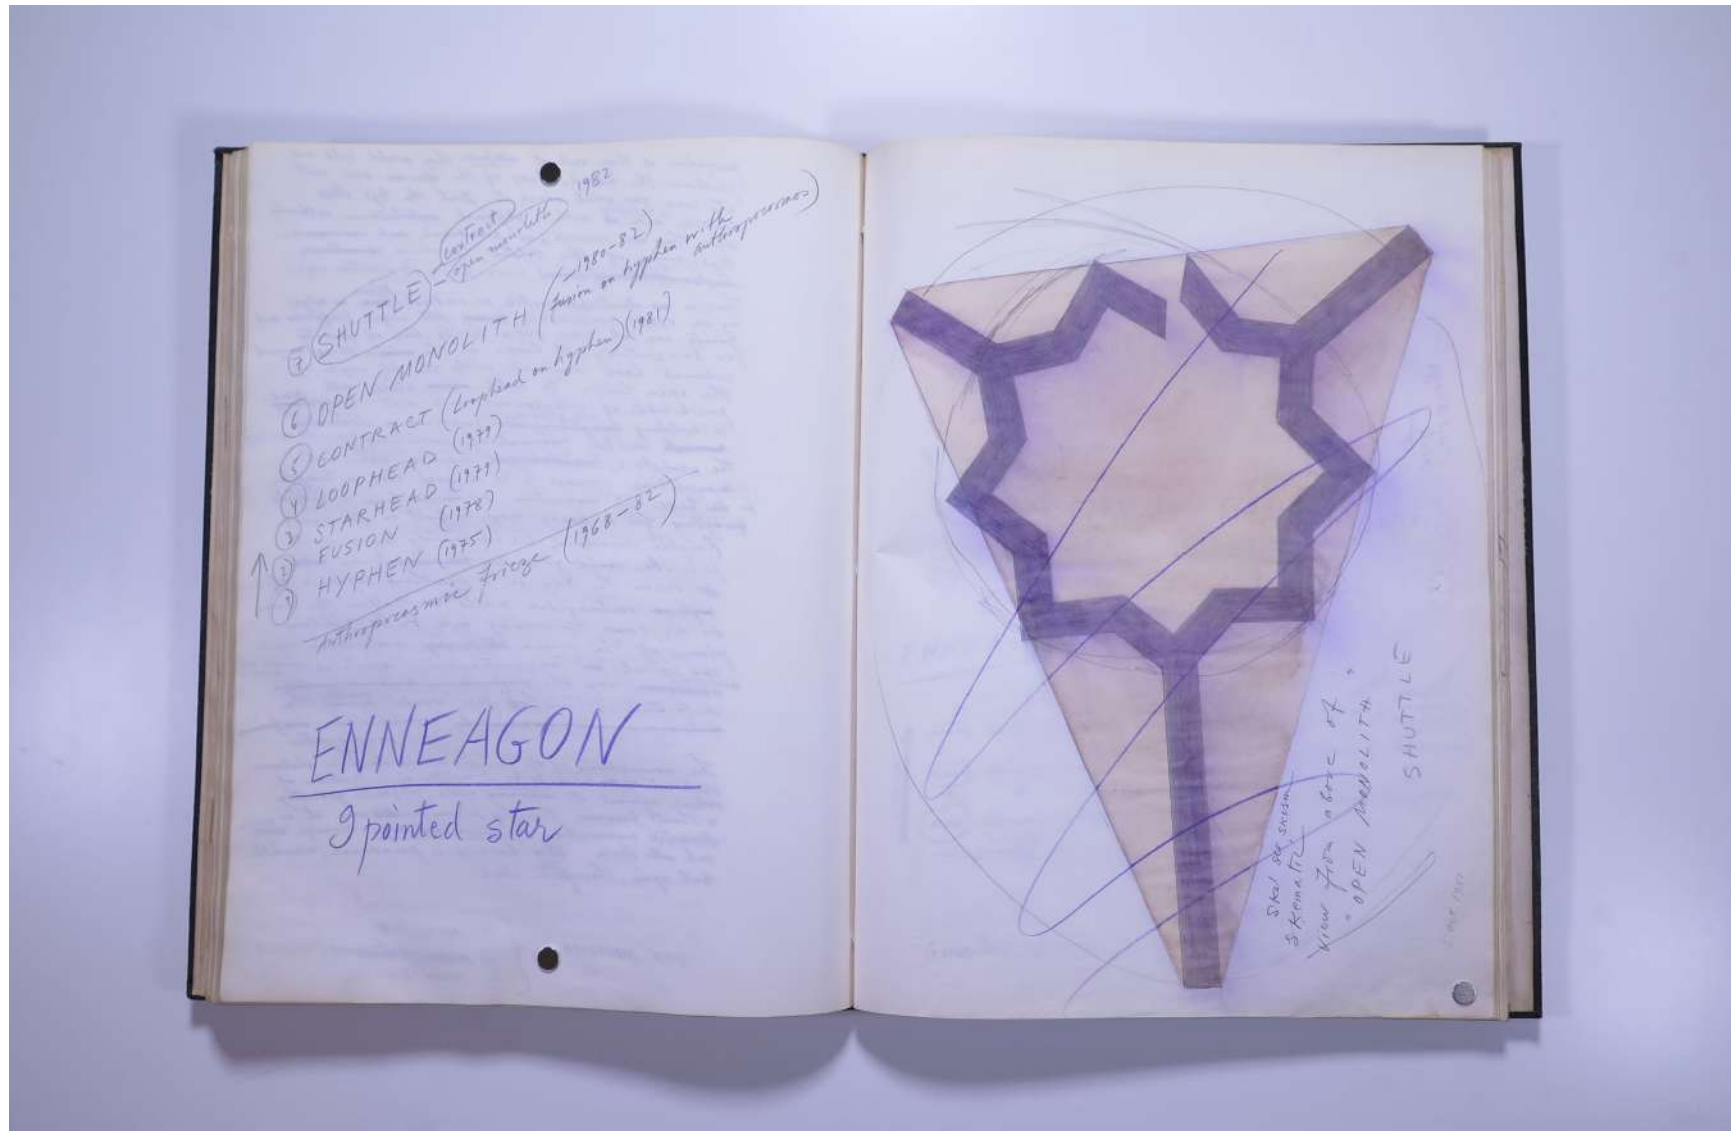 ⑦ SHUTTLE – contract
open monolith 1982
⑥ OPEN MONOLITH (–1980–82)
(fusion on hyphen with
anthropocosmos)
⑤ CONTRACT (Loophead on hyphen) (1981)
④ LOOPHEAD (1979)
③ STARHEAD (1979)
② FUSION (1978)
① HYPHEN (1975)
Anthropocosmic Frieze (1968–82)
ENNEAGON
9 pointed star
Skematic
View from above of
"OPEN MONOLITH"
SHUTTLE